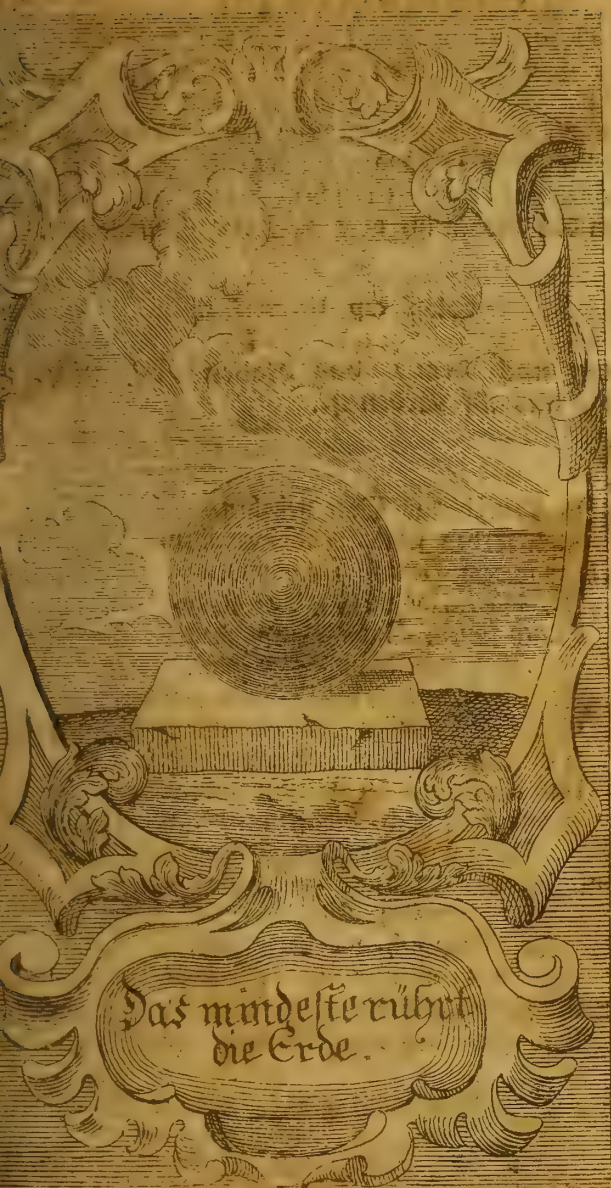 Das mindeste rührt
die Erde.